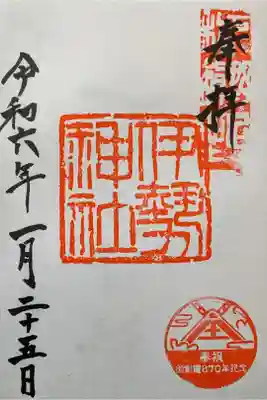 奉拝
伊勢
神社
令和六年一月二十五日
奉祝
御創建870年記念